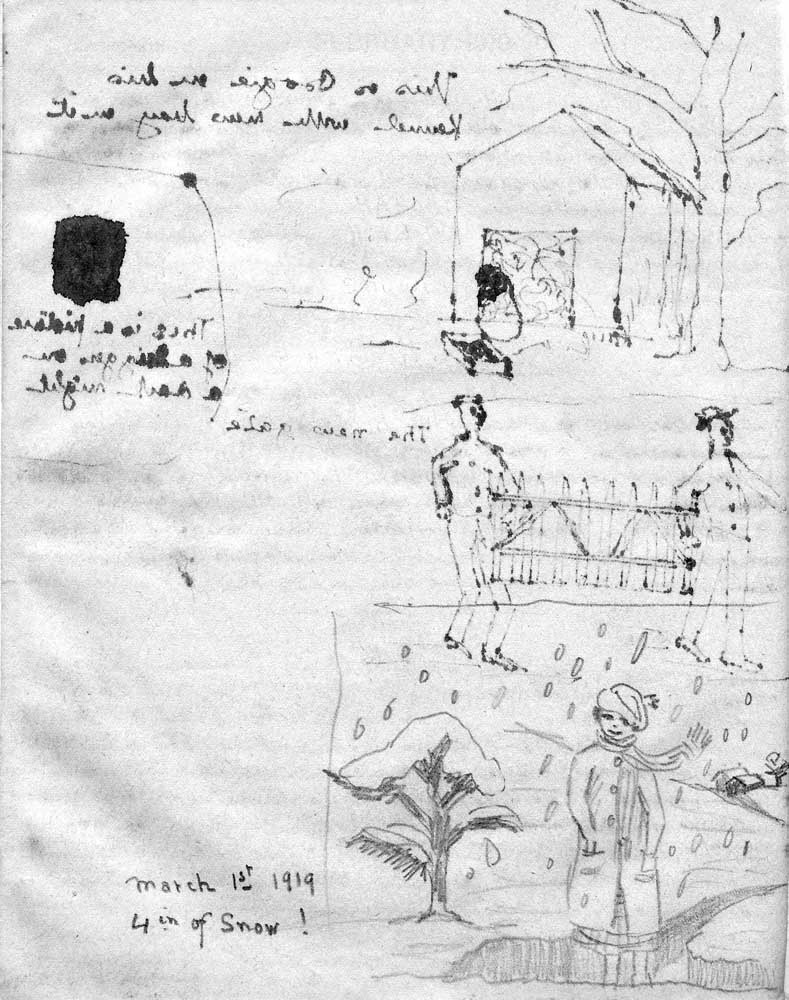 This is in his
Kennel with new hay in it
This is a picture
of a nigger on
a dark night
The new gate
March 1st 1919
4 in of Snow !